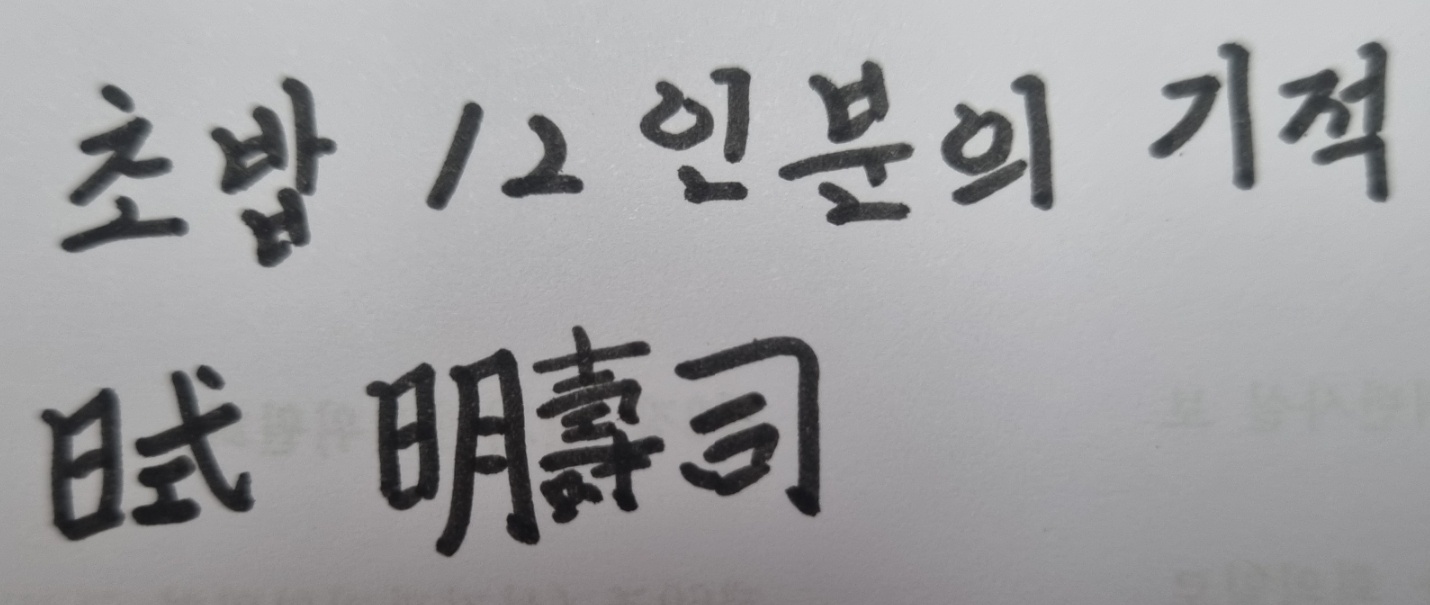 초밥 12인분의 기적
日式 明壽司